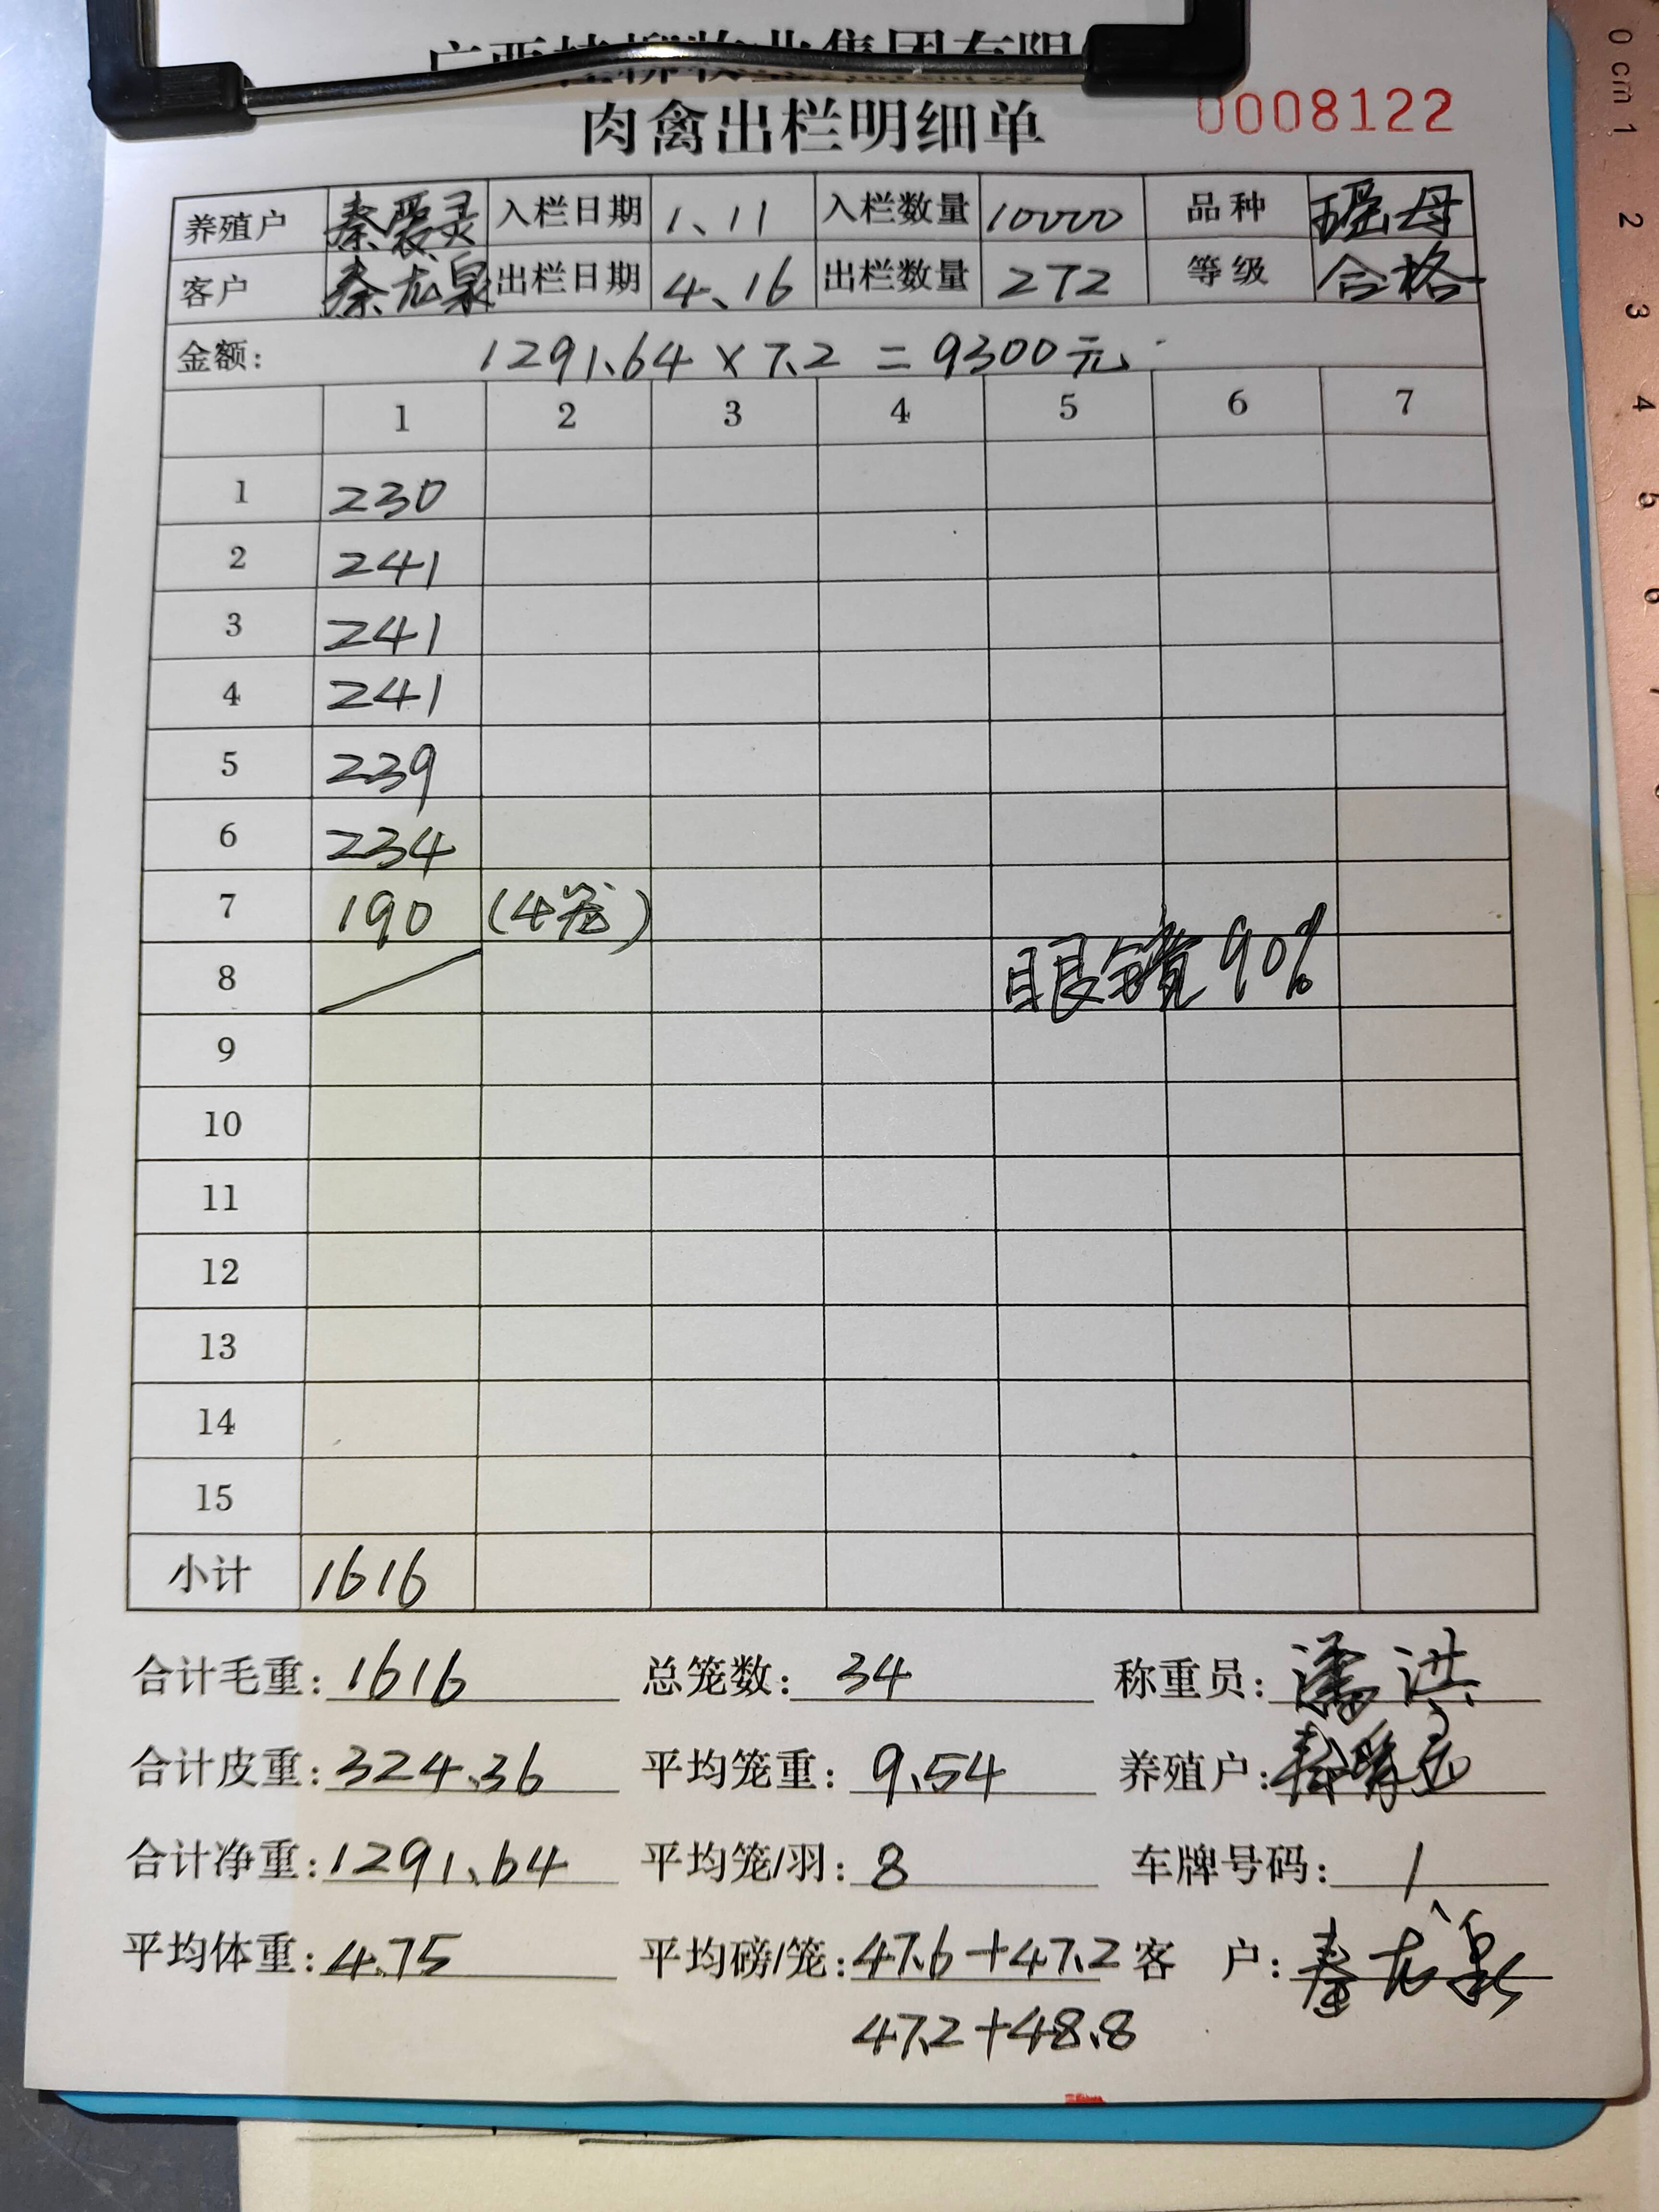 肉禽出栏明细单 0008122
养殖户 秦爱灵 入栏日期 1、11 入栏数量 10000 品种 瑶母
客户 秦龙泉 出栏日期 4、16 出栏数量 272 等级 合格
金额: 1291.64 × 7.2 = 9300元
1 2 3 4 5 6 7
1 230
2 241
3 241
4 241
5 239
6 234
7 190 (4笼)
8 眼镜90%
9
10
11
12
13
14
15
小计 1616
合计毛重: 1616 总笼数: 34 称重员: 潘洪
合计皮重: 324.36 平均笼重: 9.54 养殖户:
合计净重: 1291.64 平均笼/羽: 8 车牌号码: 1
平均体重: 4.75 平均磅/笼: 47.6+47.2 客 户: 秦龙泉
47.2+48.8
0 cm 1
2
3
4
5
6
7